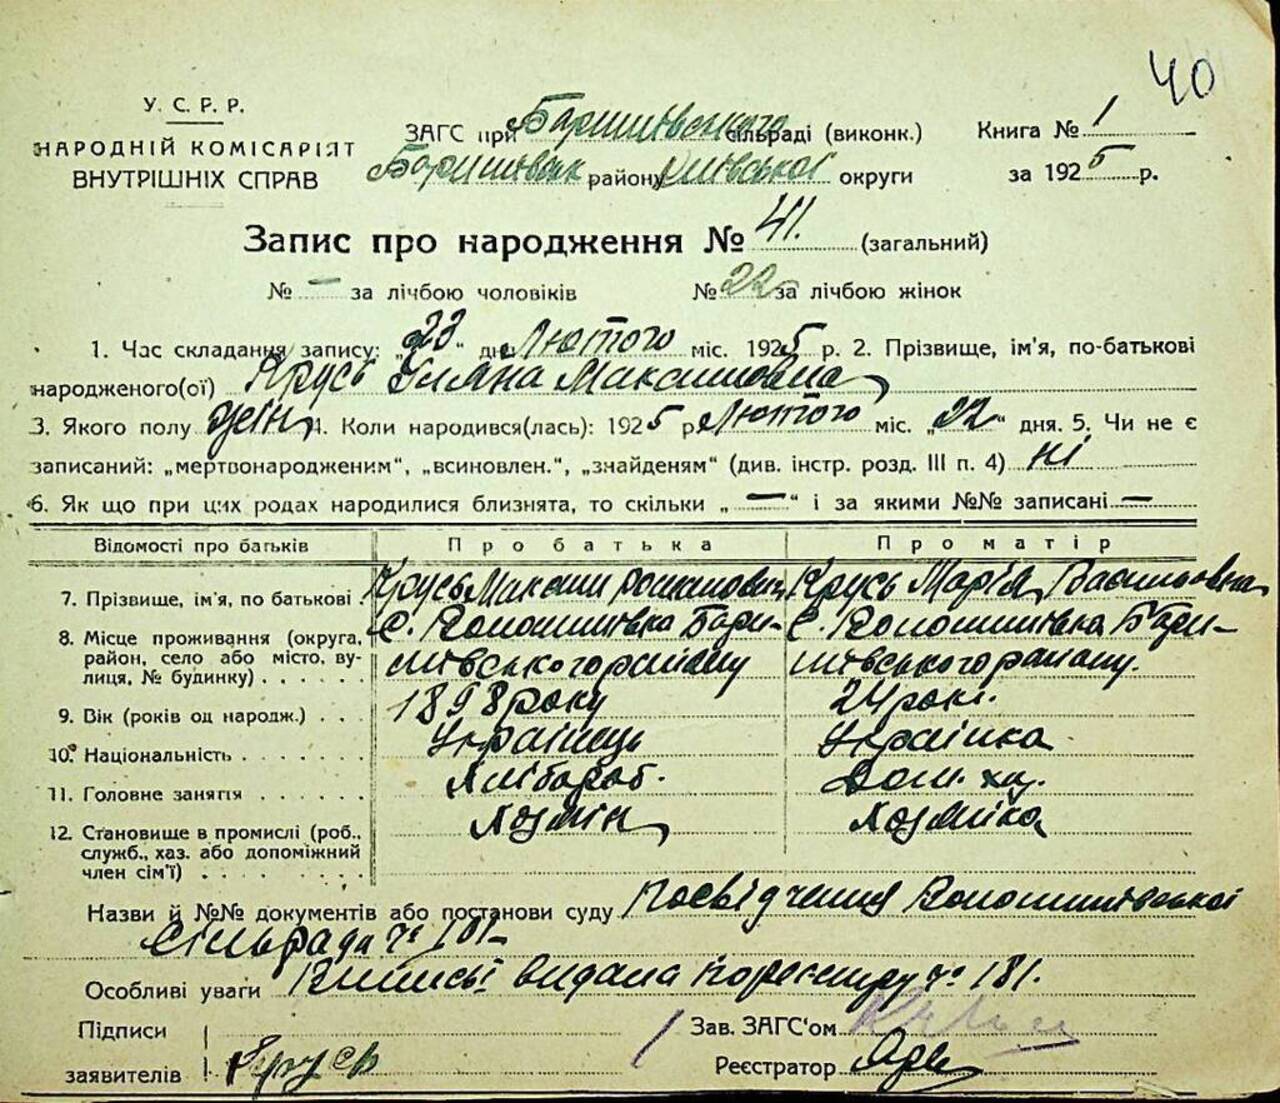 40
У. С. Р. Р.
НАРОДНІЙ КОМІСАРІЯТ
ВНУТРІШНІХ СПРАВ
ЗАГС при Баришівського сільраді (виконк.)
Баришівськ району Київської округи
Книга № 1
за 1925 р.
Запис про народження № 41. (загальний)
№ — за лічбою чоловіків № 22 за лічбою жінок
1. Час складання запису: „23“ дня Лютого міс. 1925 р. 2. Прізвище, ім'я, по-батькові
народженого(ої) Крусь Уляна Максимовна
3. Якого полу жін. 4. Коли народився(лась): 1925 р. Лютого міс. „22“ дня. 5. Чи не є
записаний: „мертвонародженим“, „всиновлен.“, „знайденям“ (див. інстр. розд. III п. 4) ні
6. Як що при цих родах народилися близнята, то скільки „—“ і за якими №№ записані —
Відомості про батьків Про батька Про матір
7. Прізвище, ім'я, по батькові . Крусь Максим Романович Крусь Марія Васильовна
8. Місце проживання (округа, район, село або місто, вулиця, № будинку) . . . . . . с. Волошинівка Бари- с. Волошинівка Бари-
шівського району шівського району.
9. Вік (років од народж.) . . . 1898 року 24 рокі.
10. Національність . . . . . . . Українець Українка
11. Головне заняття . . . . . . Хлібороб. Дом. хаз.
12. Становище в промислі (роб., служб., хаз. або допоміжний член сім'ї) . . . . . . . Хозяїн Хозяїка
Назви й №№ документів або постанови суду Посвідчення Волошинівської
Сільради № 181-
Особливі уваги Виписі видана по реєстру № 181.
Підписи
заявителів Крусь
Зав. ЗАГС'ом
Реєстратор